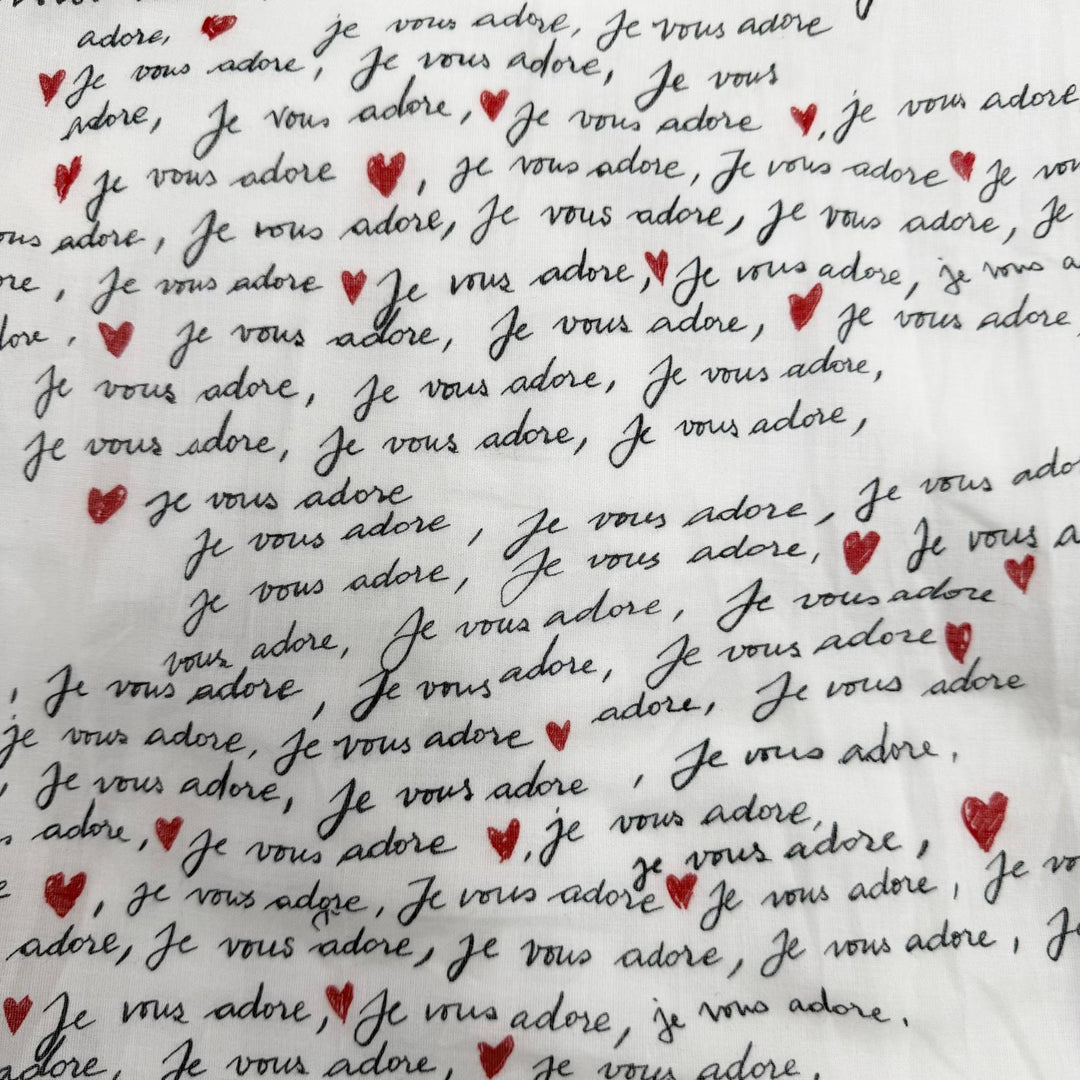 adore, je vous adore, Je vous adore
Je vous adore, Je vous adore, Je vous
adore, Je vous adore, Je vous adore , je vous adore
Je vous adore , je vous adore, Je vous adore Je
adore, Je vous adore, Je vous adore, Je vous adore, Je
, Je vous adore Je vous adore, Je vous adore, je vous
, Je vous adore, Je vous adore, Je vous adore
Je vous adore, Je vous adore, Je vous adore,
Je vous adore, Je vous adore, Je vous adore,
Je vous adore
Je vous adore , Je vous adore, Je vous
Je vous adore, Je vous adore, Je vous
vous adore, Je vous adore, Je vous adore
, Je vous adore , Je vous adore, Je vous adore
je vous adore, Je vous adore adore, Je vous adore
, Je vous adore, Je vous adore , Je vous adore,
adore, Je vous adore , je vous adore,
je vous adore ,
, je vous adore, Je vous adore Je vous adore , Je
adore, Je vous adore, Je vous adore, Je vous adore , Je
Je vous adore, Je vous adore, je vous adore.
adore, Je vous adore, Je vous adore.